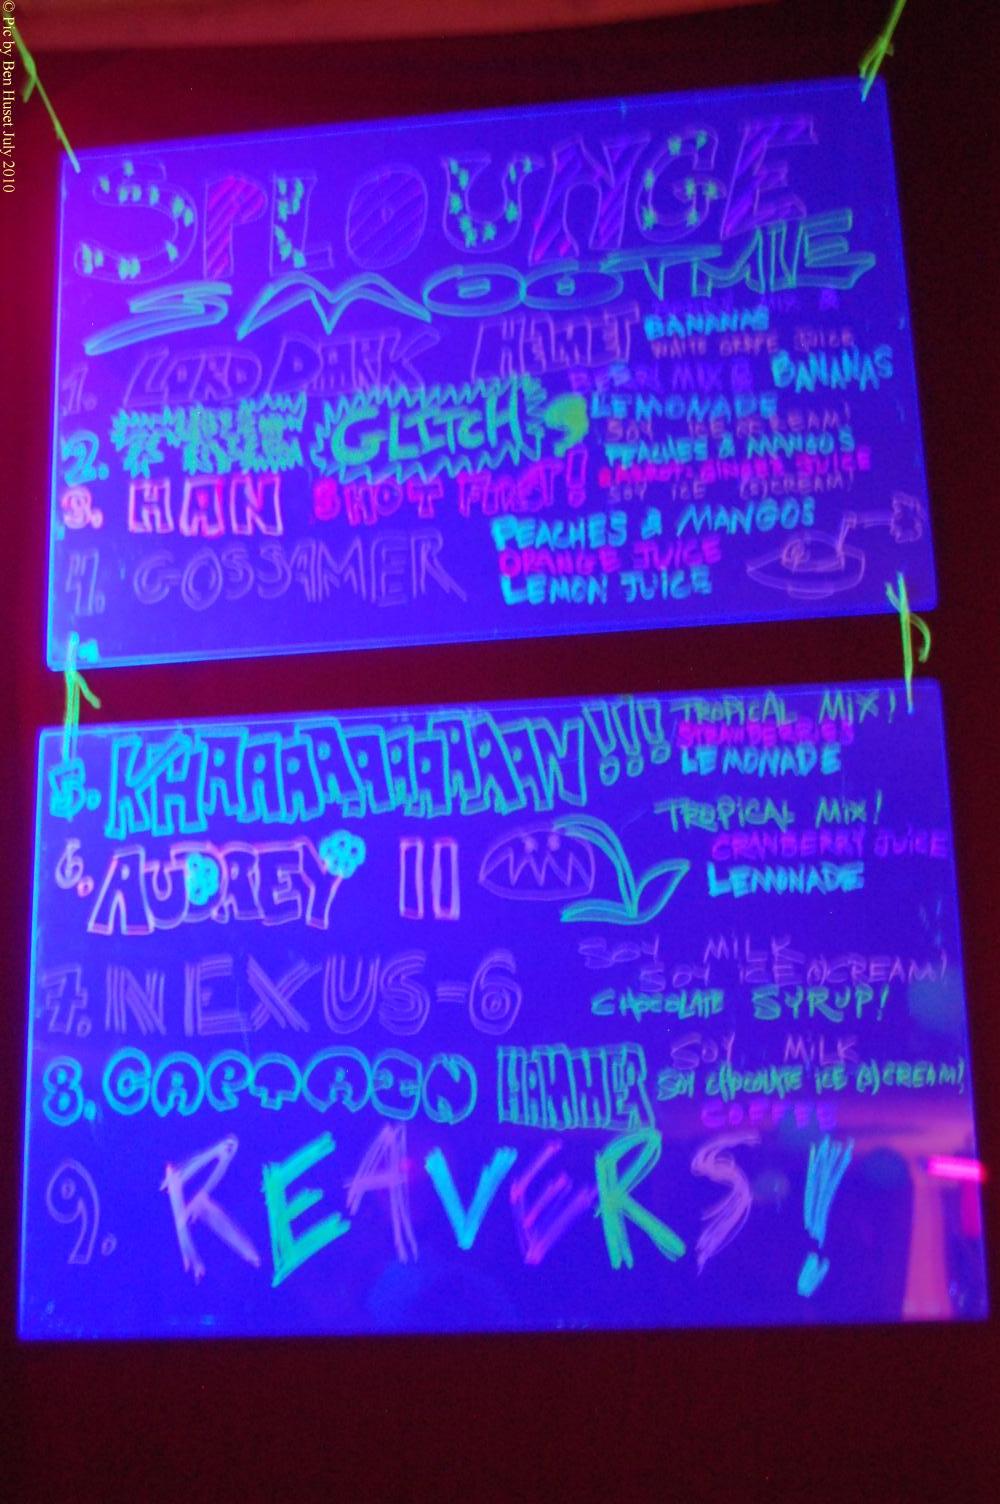 © Pic by Ben Huset July 2010
SPLOUNGE
SMOOTHIE
1. LORD DARK HELMET
MIX &
BANANAS
WHITE GRAPE JUICE
2. GLITCH
MIX &
BANANAS
LEMONADE
3. HAN SHOT FIRST!
SOY ICE (S)CREAM!
PEACHES & MANGOS
CARROT-GINGER JUICE
SOY ICE (S)CREAM!
4. GOSSAMER
PEACHES & MANGOS
ORANGE JUICE
LEMON JUICE
5. KHAAAAAAAAAAN!!!
TROPICAL MIX!
STRAWBERRIES
LEMONADE
6. AUDREY II
TROPICAL MIX!
CRANBERRY JUICE
LEMONADE
7. NEXUS-6
SOY MILK
SOY ICE (S)CREAM!
CHOCOLATE SYRUP!
8. CAPTAIN HAMMER
SOY MILK
SOY CHOCOLATE ICE (S)CREAM!
COFFEE
9. REAVERS!